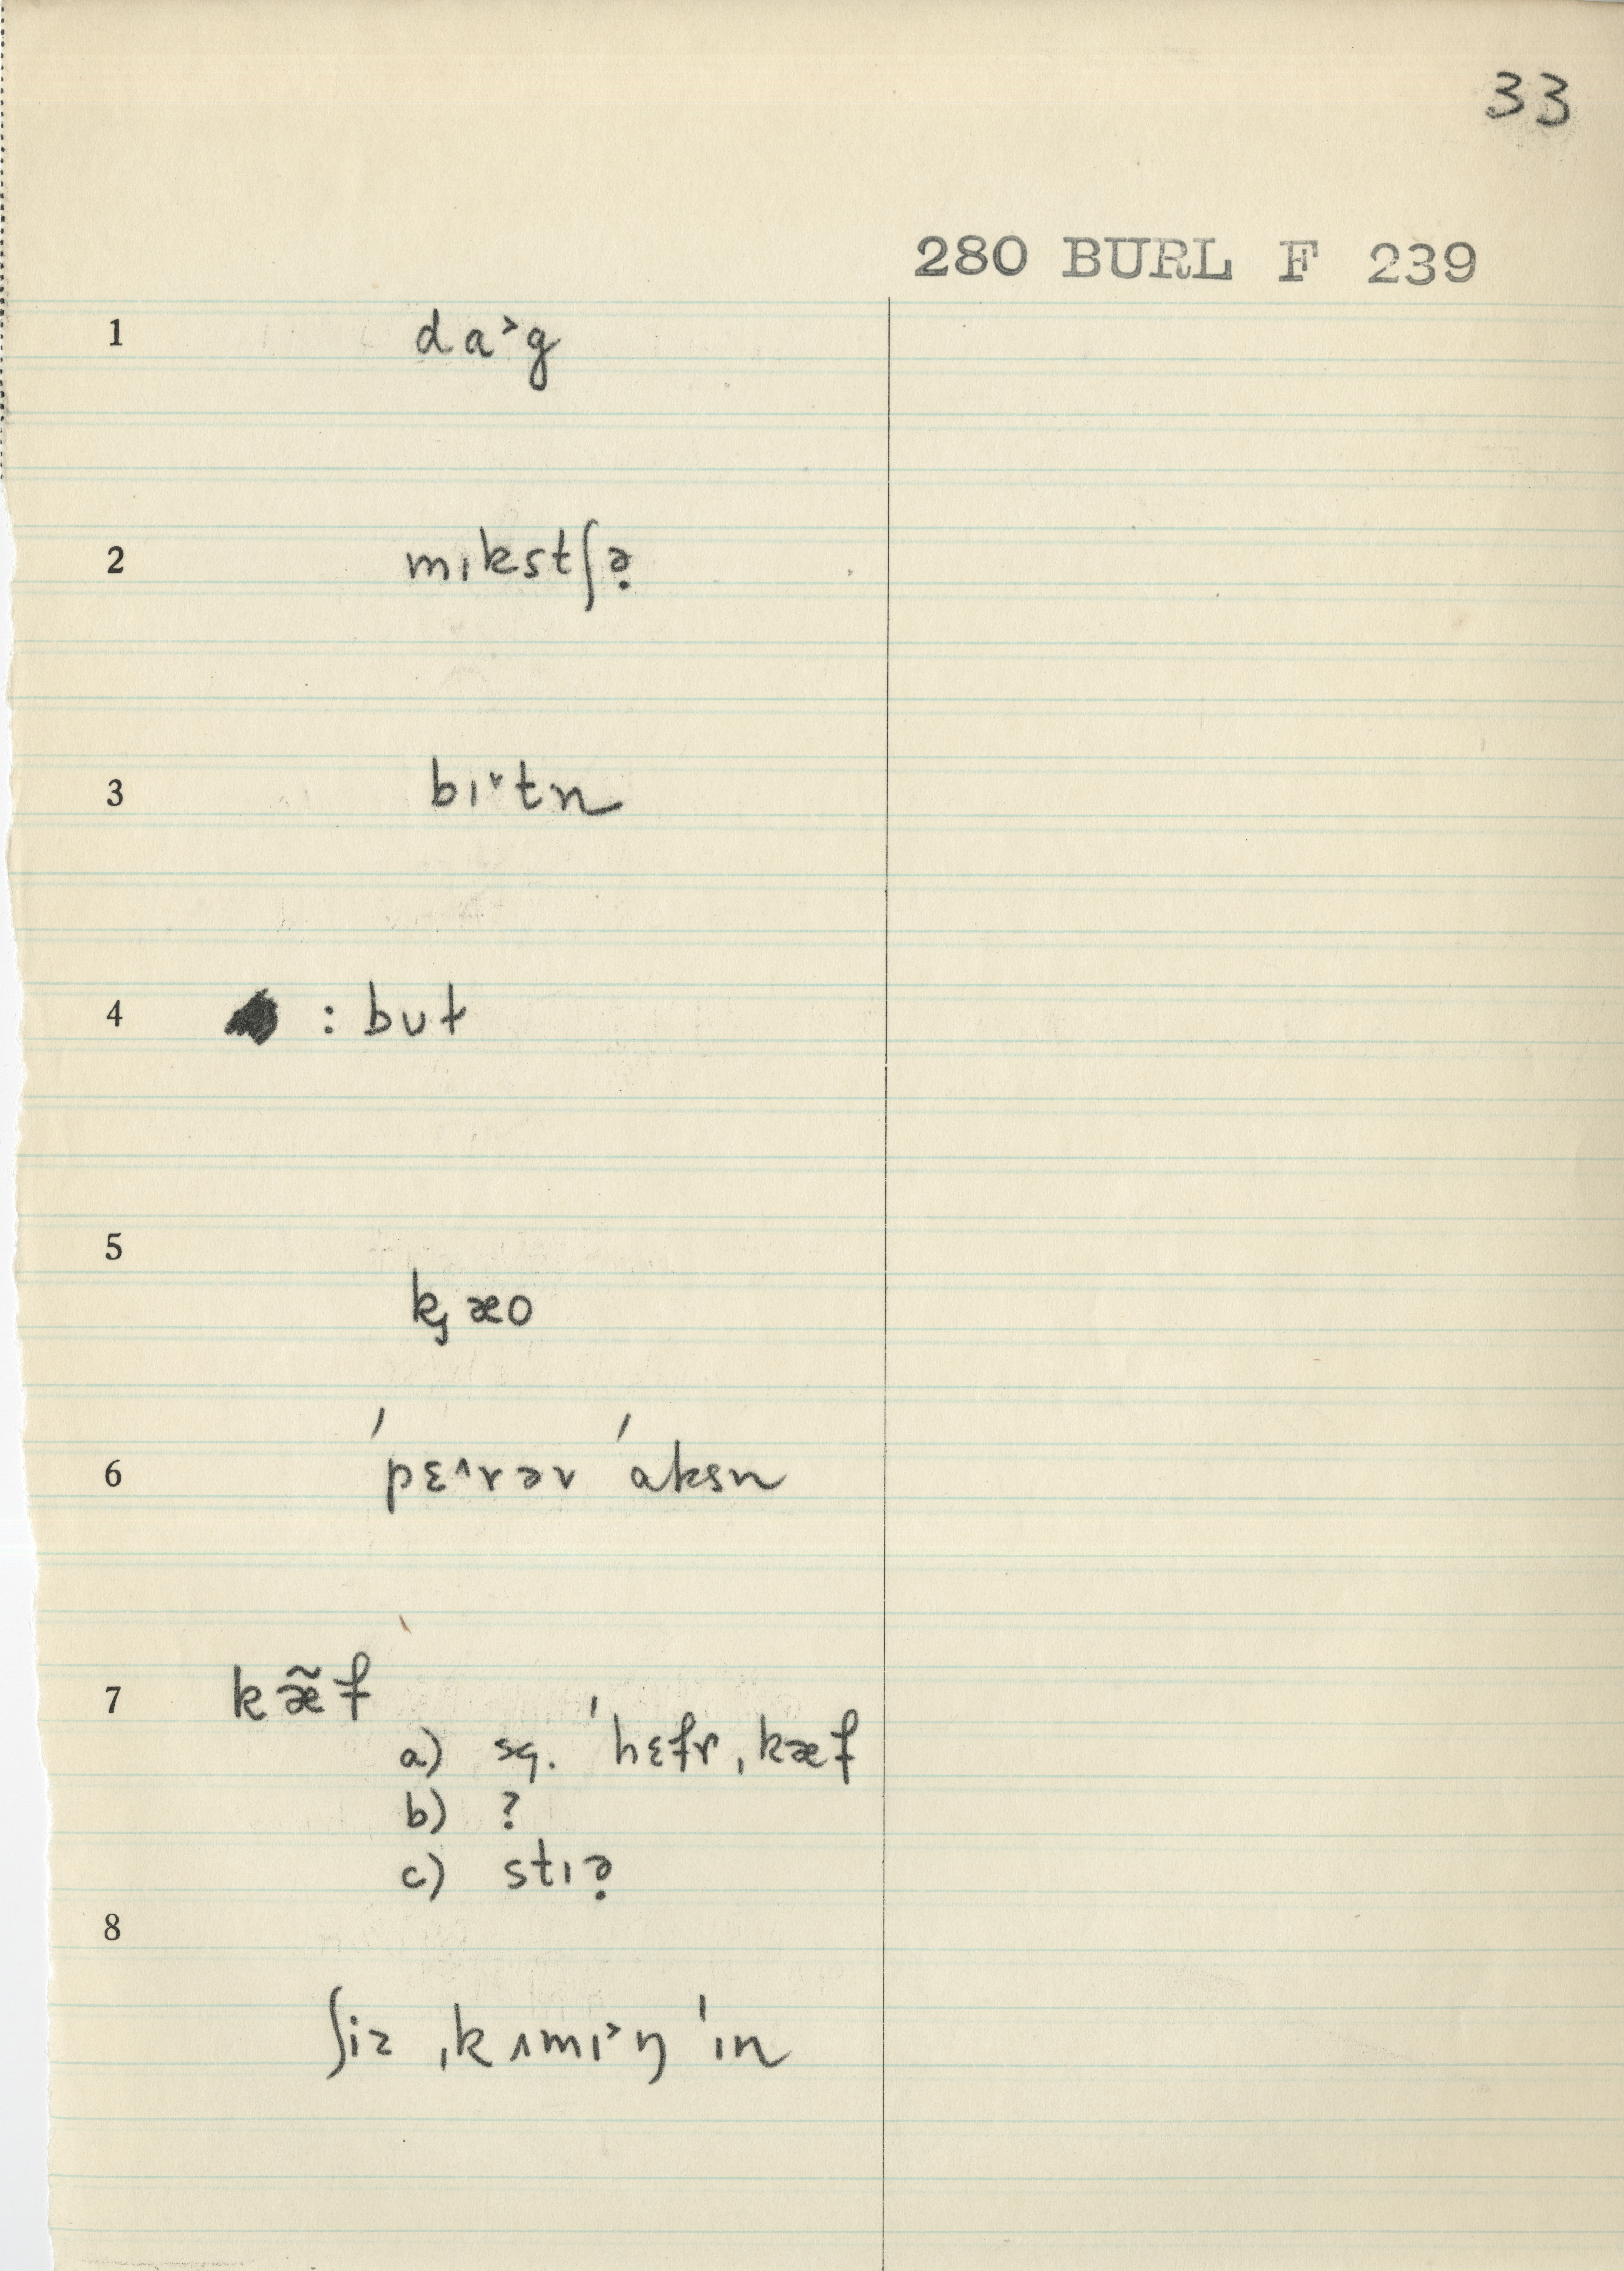 33
280 BURL F 239
1 da˃g
2 mɪkstʃə̣
3 bɪ˅tn
4 : bʊt
5
k̡æo
6 ˈpɛ˄rər ˈaksn
7 kæ̃f
a) sq. ˈhɛfr̩ˌkæf
b) ?
c) stɪə̣
8
ʃiz ˌkʌmɪ˃ŋ ˈɪn